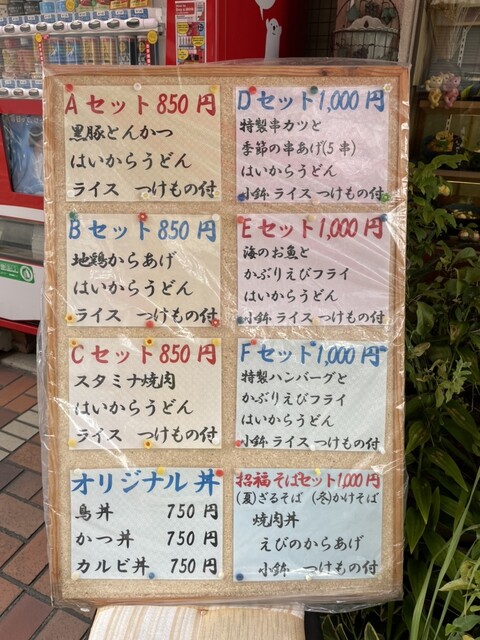 Aセット850円
黒豚とんかつ
はいからうどん
ライス つけもの付
Bセット850円
地鶏からあげ
はいからうどん
ライス つけもの付
Cセット850円
スタミナ焼肉
はいからうどん
ライス つけもの付
オリジナル丼
鳥丼 750円
かつ丼 750円
カルビ丼 750円
Dセット1,000円
特製串カツと
季節の串あげ(5串)
はいからうどん
小鉢 ライス つけもの付
Eセット1,000円
海のお魚と
かぶりえびフライ
はいからうどん
小鉢 ライス つけもの付
Fセット1,000円
特製ハンバーグと
かぶりえびフライ
はいからうどん
小鉢 ライス つけもの付
招福そばセット1,000円
(夏)ざるそば (冬)かけそば
焼肉丼
えびのからあげ
小鉢 つけもの付